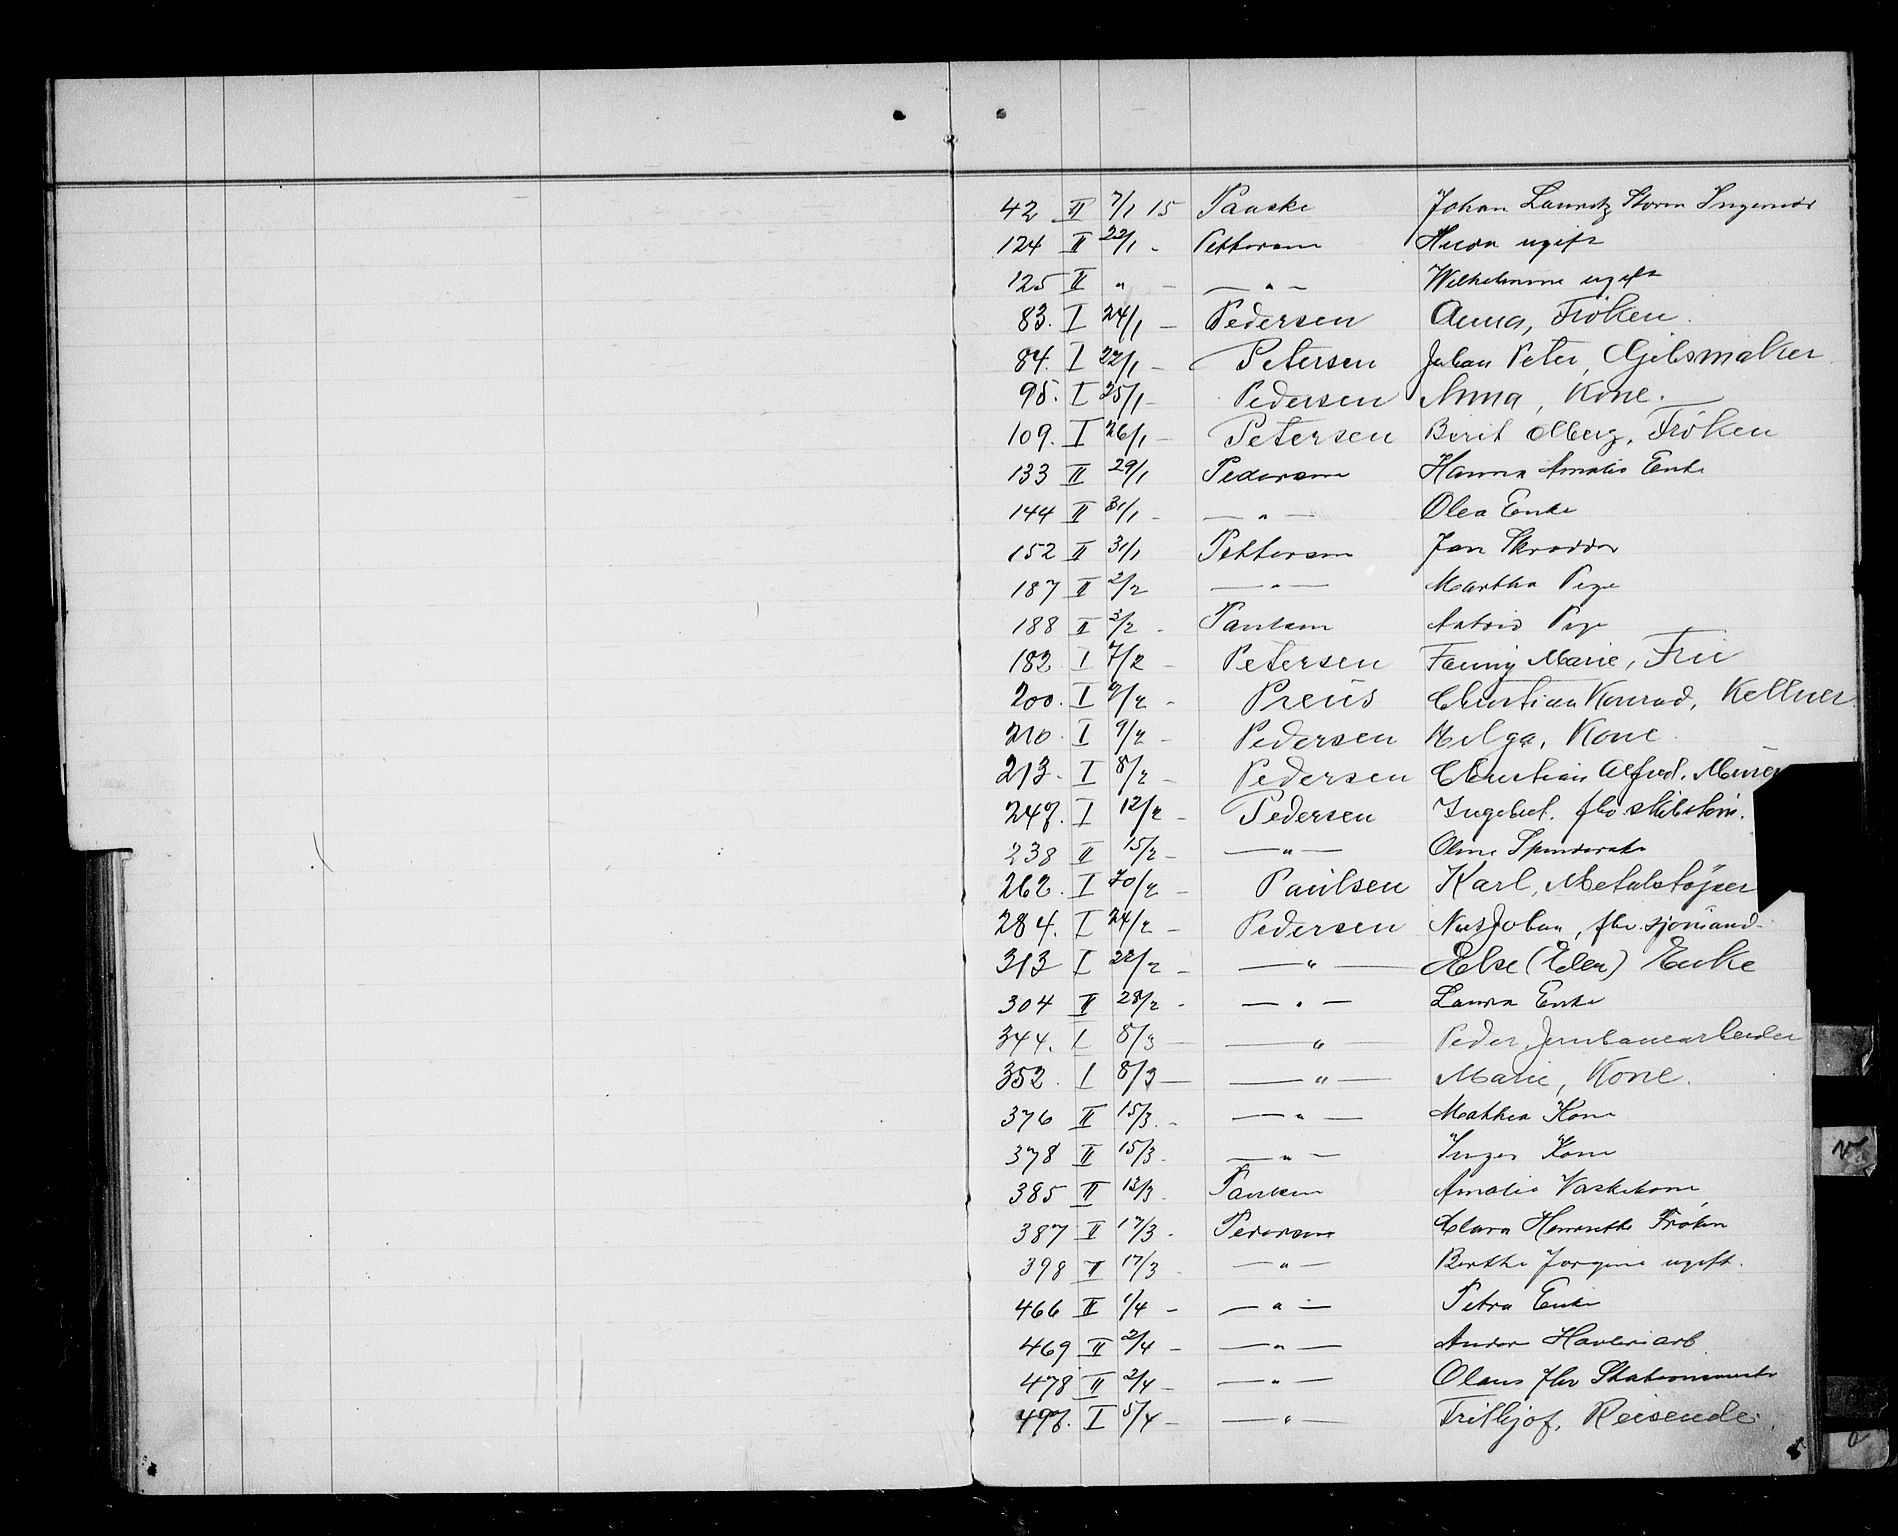 42 II 7/1 15 Paaske Johan Lauritz Storm Ingeniør
124 II 22/1 - Pettersen Hulda ugift
125 II " - — " — Wilhelmine ugift
83. I 24/1 - Pedersen Anna, Frøken.
84. I 22/1 - Petersen Johan Peter, Gjibsmaker
95. I 25/1 - Pedersen Anna, Kone.
109. I 26/1 - Petersen Berit Olberg, Frøken
133 II 29/1 Pedersen Hanna Amalie Enke
144 II 31/1 - — " — Olea Enke
152 II 31/1 Pettersen Jon Skrædder
187 II 2/2 — " — Martha Pige
188 II 3/2 - Paulsen Astrid Pige
182. I 7/2 - Petersen Fanny Marie, Frue
200. I 9/2 - Preüs Christian Konrad, Kellner
210. I 9/2 - Pedersen Helga, Kone.
213. I 8/2 - Pedersen Christian Alfred. Murer
247. I 12/2 - Pedersen Ingebret. fhv skibstøm.
238 II 15/2 - — " — Oline
262. I 20/2 - Paülsen Karl, Metalstøper
284. I 24/2 - Pedersen Nils Johan, fhv. sjømand
313 I 22/2 - — " — Else (Elen) Enke
304 II 28/2 - — " — Laura Enke
344. I 8/3 — — " — Peder, Jernbanearbeider
352. I 8/3 — — " — Marie, Kone.
376 II 15/3. - — " — Mathea Kone
378 II 15/3. — " — Inger Kone
385 II 12/3. Paulsen Amalie Vaskekone
387 II 17/3. Pedersen Clara Henriette Frøken
398 II 17/3 - — " — Berthe Jørgine ugift.
466 II 1/4 - — " — Petra Enke
469 II 2/4 - — " — Anders Havnearb
478 II 2/4 - — " — Olaus fhv Stationsmester
497. I 5/4 - — " — Frithjof, Reisende.